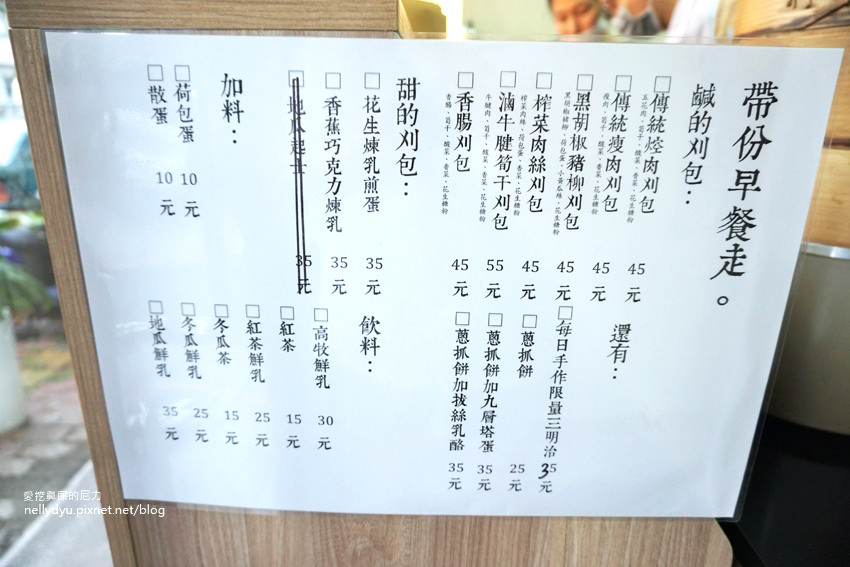 帶份早餐走。
鹹的刈包：
□傳統焢肉刈包 45元
五花肉、筍干、酸菜、香菜、花生糖粉
□傳統瘦肉刈包 45元
瘦肉、筍干、酸菜、香菜、花生糖粉
□黑胡椒豬柳刈包 45元
黑胡椒豬柳、荷包蛋、小黃瓜絲、花生糖粉
□榨菜肉絲刈包 45元
榨菜肉絲、荷包蛋、香菜、花生糖粉
□滷牛腱筍干刈包 55元
牛腱肉、筍干、酸菜、香菜、花生糖粉
□香腸刈包 45元
香腸、筍干、酸菜、香菜、花生糖粉
甜的刈包：
□花生煉乳煎蛋 35元
□香蕉巧克力煉乳 35元
□地瓜起士 35元
加料：
□荷包蛋 10元
□散蛋 10元
還有：
□每日手作限量三明治 35元
□蔥抓餅 25元
□蔥抓餅加九層塔蛋 35元
□蔥抓餅加拔絲乳酪 35元
飲料：
□高牧鮮乳 30元
□紅茶 15元
□紅茶鮮乳 25元
□冬瓜茶 15元
□冬瓜鮮乳 25元
□地瓜鮮乳 35元
愛挖鼻屎的尼力
nellydyu.pixnet.net/blog